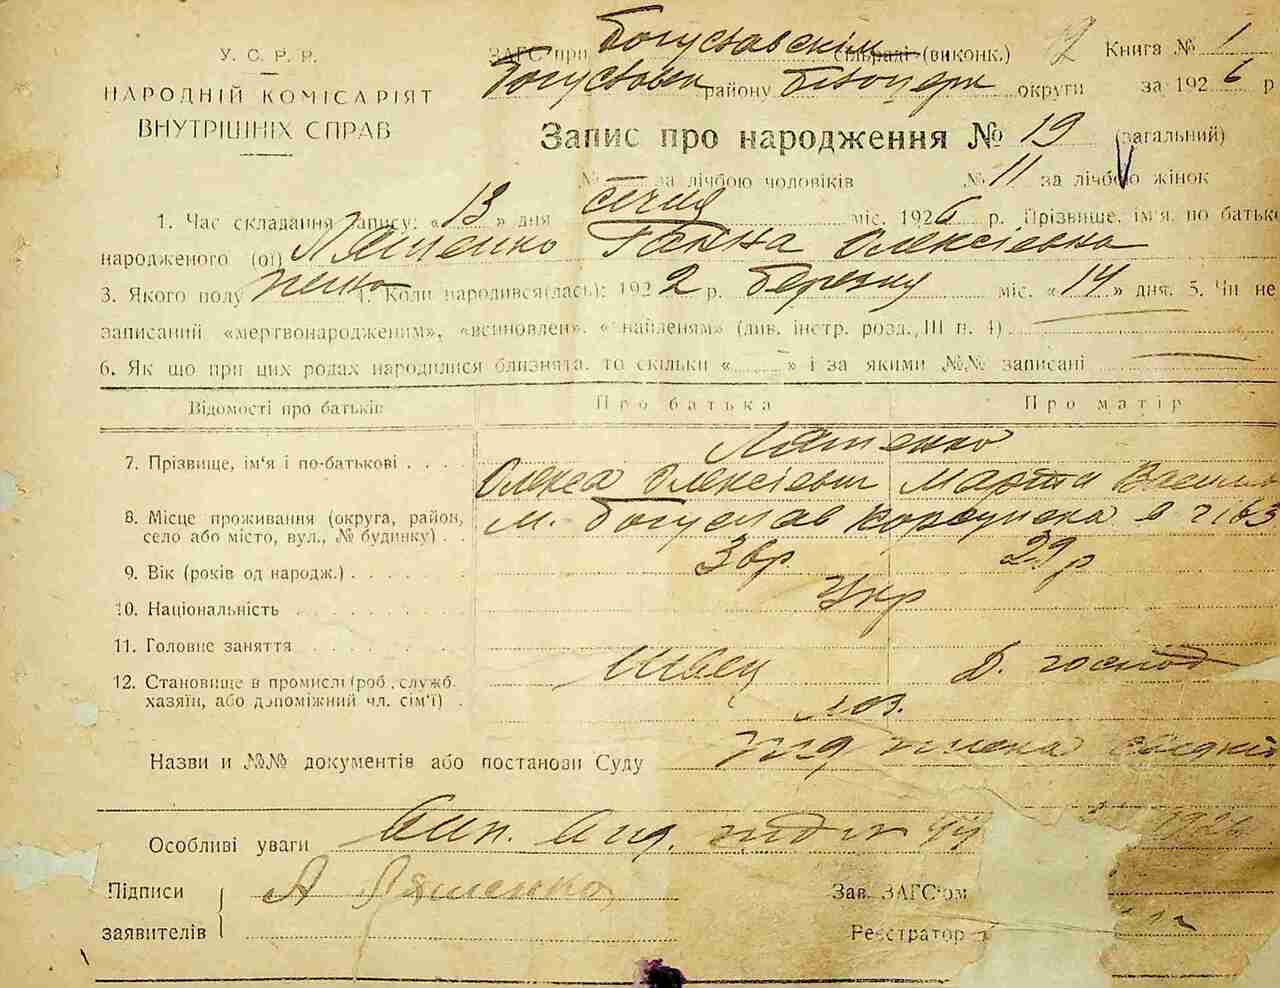 У. С. Р. Р.
НАРОДНІЙ КОМІСАРІЯТ
ВНУТРІШНІХ СПРАВ
ЗАГС при Богуславскім сільраді (виконк.) Книга № 1
Богуславськ району Білоцерк округи за 1926 р
Запис про народження № 19 (загальний)
№ за лічбою чоловіків № 11 за лічбою жінок
1. Час складання запису: «13» дня січня міс. 1926 р. Прізвище, ім'я, по батькс
народженого (ої) Ляшенко Ганна Олексіевна
3. Якого полу жіно 4. Коли народився(лась): 1922 р. березню міс. «14» дня. 5. Чи не
записаний «мертвонародженим», «всиновлен», «знайденям» (див. інстр. розд. III п. 4)
6. Як що при цих родах народилися близнята, то скільки « » і за якими №№ записані
Відомості про батьків Про батька Про матір
7. Прізвище, ім'я і по-батькові Ляшенко
Олекса Олексіевич Марта Васил
8. Місце проживання (округа, район, село або місто, вул., № будинку) м. Богуслав Корсунска
9. Вік (років од народж.) 29 р
10. Національність Укр
11. Головне заняття Швец Д. господ
12. Становище в промислі (роб., служб. хазяїн, або допоміжний чл. сім'ї) хоз.
Назви и №№ документів або постанови Суду
Особливі уваги
Підписи А Ляшенко Зав. ЗАГС'ом
заявителів Реєстратор